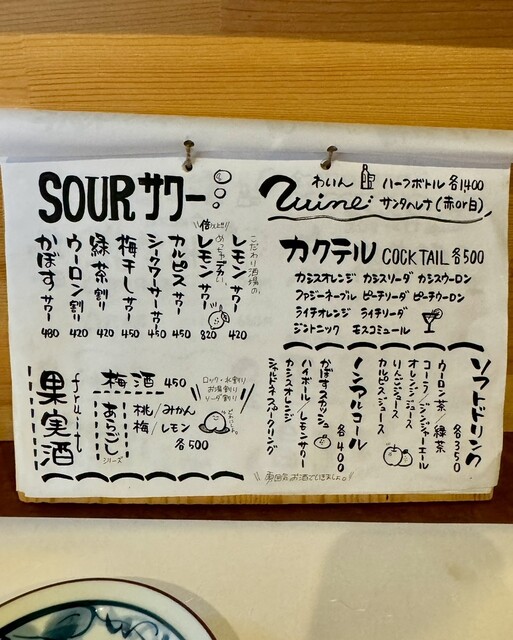 SOUR サワー
こだわり酒場の
レモンサワー 420
めっちゃデカい
レモンサワー 820
カルピスサワー 450
シークワーサーサワー 450
梅干しサワー 450
緑茶割り 420
ウーロン割り 420
かぼすサワー 480
わいん ハーフボトル 各1,400
Wine サンタヘレナ(赤or白)
カクテル COCKTAIL 各500
カシスオレンジ カシスソーダ カシスウーロン
ファジーネーブル ピーチソーダ ピーチウーロン
ライチオレンジ ライチソーダ
ジントニック モスコミュール
果実酒 fruit
梅酒 450
ロック・水割り
お湯割り
ソーダ割り
あらごしシリーズ
桃/みかん
梅/レモン
各500
ソフトドリンク
各350
ウーロン茶/緑茶
コーラ/ジンジャーエール
オレンジジュース
りんごジュース
カルピスジュース
ノンアルコール
各400
かぼすスカッシュ
ハイボール/レモンサワー
カシスオレンジ
シャルドネスパークリング
雰囲気お酒でいきましょ。